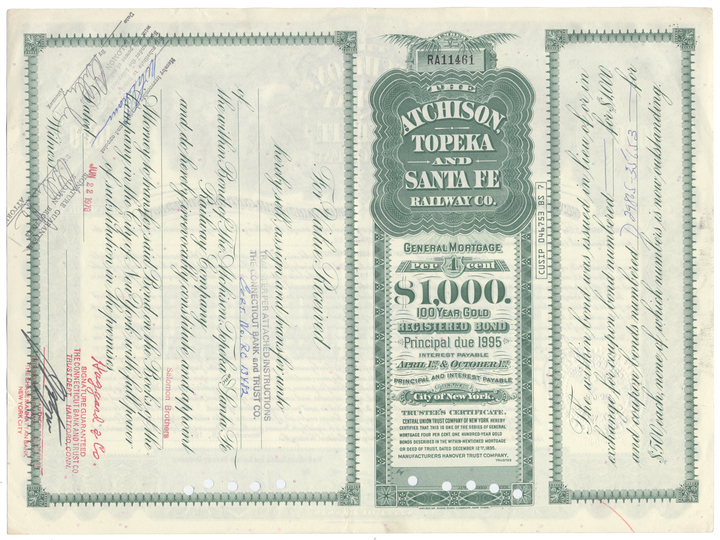 RA11461
THE
ATCHISON,
TOPEKA
AND
SANTA FE
RAILWAY CO.
GENERAL MORTGAGE
Per 4 cent
$1,000.
100 YEAR GOLD
REGISTERED BOND
Principal due 1995
INTEREST PAYABLE
APRIL 1ST & OCTOBER 1ST
PRINCIPAL AND INTEREST PAYABLE
City of New York.
TRUSTEE'S CERTIFICATE.
CENTRAL UNION TRUST COMPANY OF NEW YORK, HEREBY
CERTIFIES THAT THIS IS ONE OF THE SERIES OF GENERAL
MORTGAGE FOUR PER CENT, ONE HUNDRED-YEAR GOLD
BONDS DESCRIBED IN THE WITHIN-MENTIONED MORTGAGE
OR DEED OF TRUST, DATED DECEMBER 12TH, 1895.
MANUFACTURERS HANOVER TRUST COMPANY,
TRUSTEE
By
CUSIP 046753 BS 7
This bond was issued in lieu of or in
exchange for coupon bond numbered for $1,000
and coupon bonds numbered for
$500, neither of which bonds is now outstanding.
For Value Received
hereby sell, assign and transfer unto
of
the within Bond of The Atchison, Topeka & Santa Fe
Railway Company
and do hereby irrevocably constitute and appoint
Salomon Brothers
Attorney, to transfer said Bond on the Books of the
Company in the City of New York with full power
of substitution in the premises.
Dated
JUN 22 1970
Witness
TRANSFER PER ATTACHED INSTRUCTIONS
THE CONNECTICUT BANK and TRUST CO.
Haggard & Co.
SIGNATURE GUARANTEED
THE CONNECTICUT BANK AND TRUST CO
TRUST DEPT. HARTFORD, CONN.
NEW YORK CITY